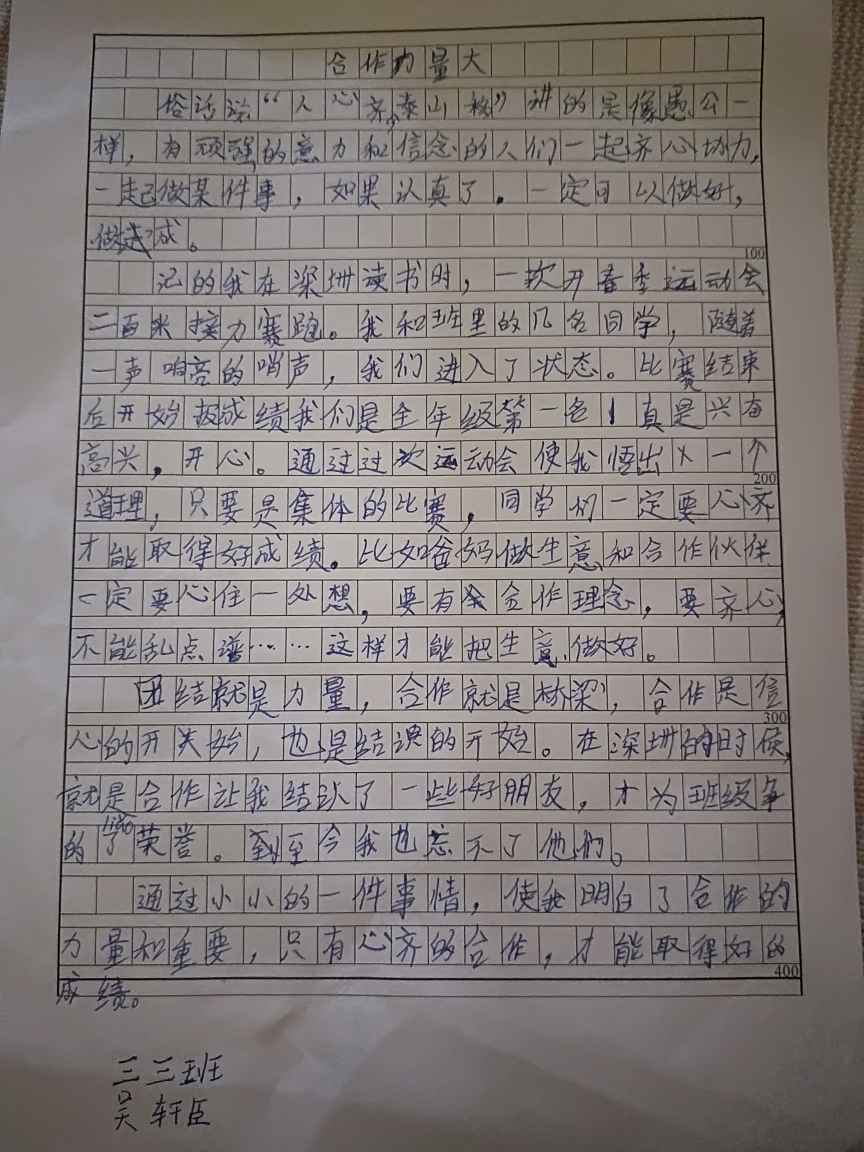 合作力量大
俗话说“人心齐,泰山移”讲的是像愚公一
样，有顽强的意力和信念的人们一起齐心协力,
一起做某件事，如果认真了。一定可以做好，
做成。
100
记的我在深圳读书时，一次开春季运动会
二百米接力赛跑。我和班里的几名同学，随着
一声响亮的哨声，我们进入了状态。比赛结束
后开始报成绩我们是全年级第一名！真是兴奋
高兴，开心。通过过次运动会使我悟出一个
200
道理，只要是集体的比赛，同学们一定要心齐
才能取得好成绩。比如爸妈做生意和合作伙伴
一定要心住一处想，要有合作理念，要齐心,
不能乱点谱……这样才能把生意做好。
团结就是力量，合作就是桥梁，合作是信
300
心的开始，也是结课的开始。在深圳的时侯,
就是合作让我结识了一些好朋友，才为班级争
的了荣誉。到至今我也忘不了他们。
通过小小的一件事情，使我明白了合作的
力量和重要，只有心齐的合作，才能取得好的
400
成绩。
三三班
吴轩臣